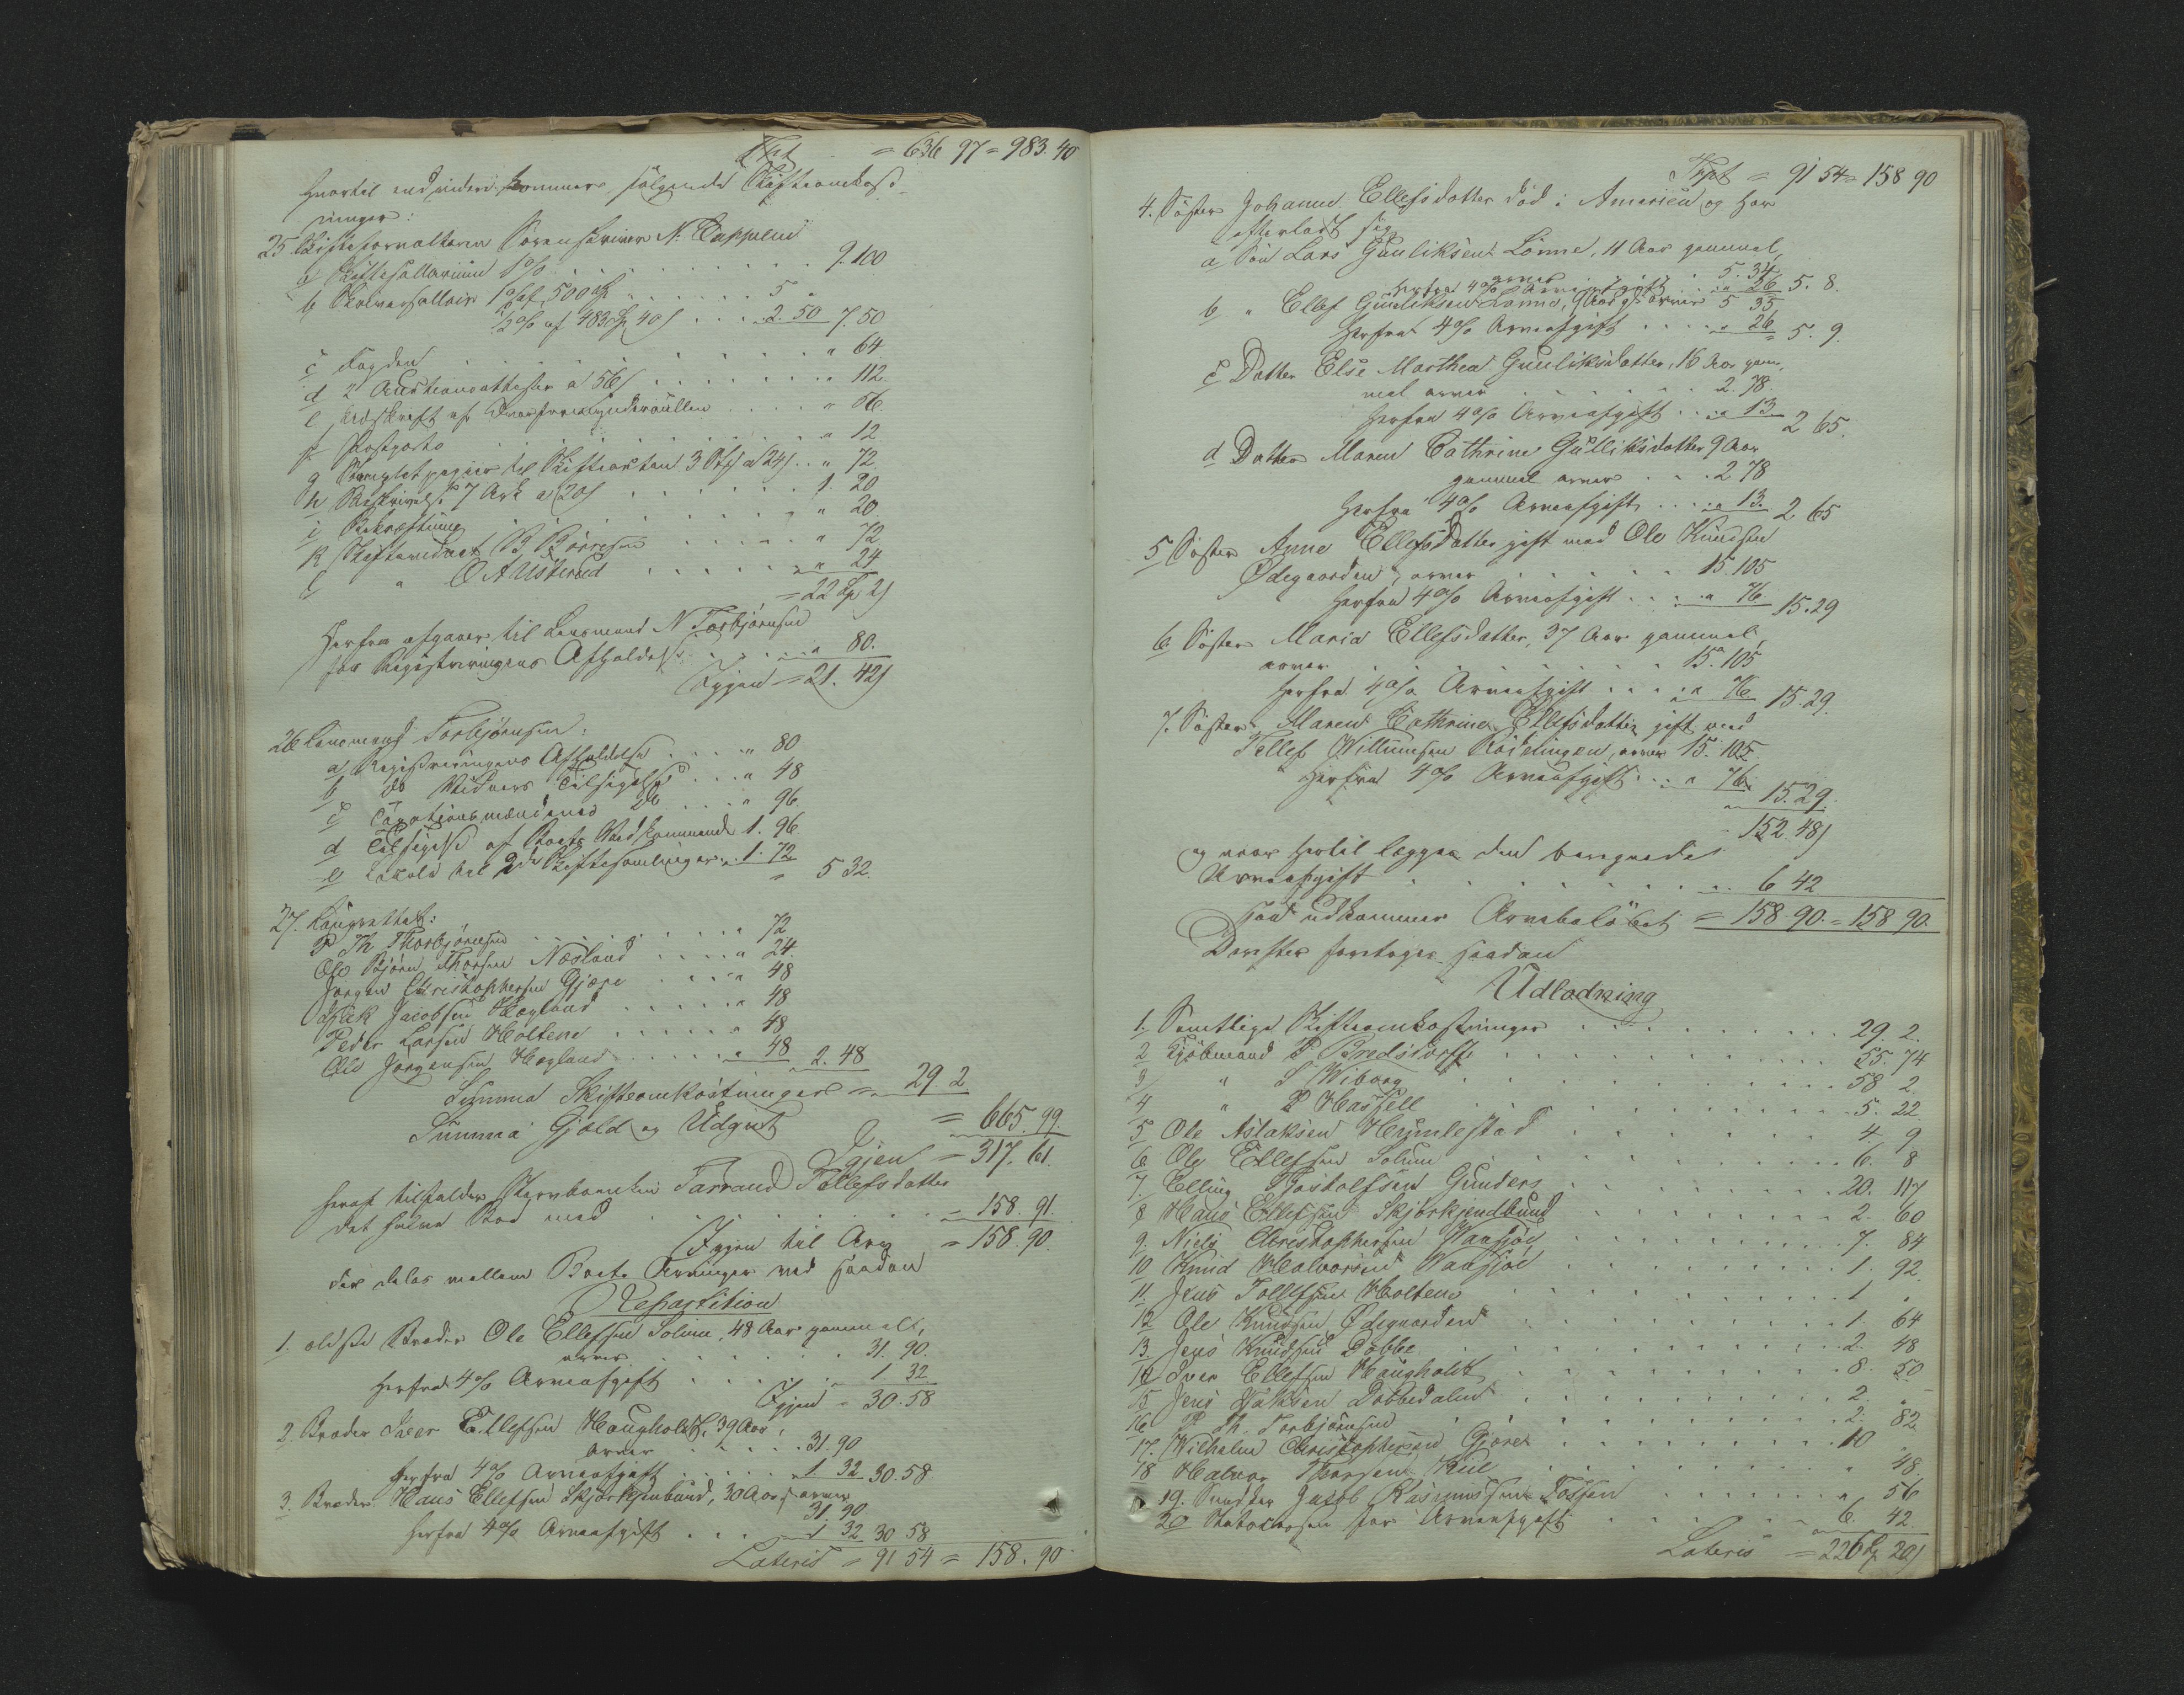 Tpt = 636 97 = 983. 40
hvortil endvidere kommer følgende Skifteomkost-
ninger:
25. Skifteforvalteren Sorenskriver N. Cappelen
a Skiftesallarium 1% . . . 9. 100
b Skriversallair 1% af 500 Sp . . . 5 "
½% af 483 Sp 40 s . . . 2. 50 7. 50
c Fogden . . . " 64
d 2 Auctionsattester a 56 s . . . " 112.
e Udskrift af . . . " 56.
f Postporto . . . " 12
g Stemplet papir til Skifteacten 3 a 24 s . . " 72.
h Beskrivelse 7 Ark a 20 s . . . 1. 20
i Bekræftning . . . " 20.
k Skiftevidnet B. Börresen . . . " 72
l " O A Usterud . . . " 24
= 22 Sp 2 s
Herfra afgaaer til Lensmand N Torbjörnsen
for Registreringens Afholdelse . . . " 80.
Igjen = 21. 42 s
26 Lensmand Torbjörnsen:
a Registreringens Afholdelse . . . " 80
b do Vidners Tilsigelse . . . " 48
c Taxationsmændenes do . . . " 96.
d Tilsigelse af Boets Vedkommende 1. 96.
e Lokale til 2de Skiftesamlinger . . 1. 72
= 5 32.
27. Laugrettet:
P Th Thorbjörnsen . . . " 72
Ole Björn Thorsen Næsland . . . " 24.
Jörgen Christophersen Gjære . . . " 48
Jacobsen Høgland . . . " 48
Peder Larsen Holtene . . . " 48
Ole Jörgensen Høgland . . . " 48 2. 48
Summa Skifteomkostninger = 29. 2.
Summa Gjæld og Udgivt = 665. 99.
Igjen = 317. 61.
heraf tilfalder Stervboenken Tarrand Tellefsdatter
det halve Bo med . . . = 158. 91.
Igjen til Arv = 158. 90.
der deles mellem Boets Arvinger ved saadan
Repartition
1. ældste Broder Ole Ellefsen Solum, 48 Aar gammel,
arver . . . 31. 90.
herfra 4% Arveafgift . . . 1 32
Igjen = 30. 58
2. Broder Iver Ellefsen Haugholdt, 39 Aar,
arver . . . 31. 90
herfra 4% Arveafgift . . . 1 32 30. 58
3. Broder Hans Ellefsen Skjörkjenbund, 30 Aar, arver
31. 90
herfra 4% Arveafgift . . . 1 32 30 58
Lateris = 91 54 = 158. 90
Tpt = 91 54 = 158 90
4. Söster Johanne Ellefsdatter död i Amerika og har
efterladt sig
a Sön Lars Gunliksen Lönne, 11 Aar gammel,
arver 5. 34
herfra 4% Arveafgift . . . " 26 5. 8.
b " Ellef Gunliksen Lönne, 9 Aar gl. arver 5 35
herfra 4% Arveafgift . . . " 26 5. 9.
c Datter Else Marthea Gunliksdatter, 16 Aar gam-
mel arver . . . 2. 78.
herfra 4% Arveafgift . . . " 13 2 65.
d Datter Maren Cathrine Gulliksdatter 9 Aar
gammel arver . . . 2 78
herfra 4% Arveafgift . . . " 13. 2 65
5 Söster Anne Ellefsdatter gift med Ole Knudsen
Ødegaarden, arver . . . 15. 105
herfra 4% Arveafgift . . . " 76. 15. 29
6. Söster Maria Ellefsdatter, 37 Aar gammel,
arver . . . 15. 105
herfra 4% Arveafgift . . . " 76 15. 29.
7. Söster Maren Cathrine Ellefsdatter gift med
Tellef Willumsen Rödningen, arver 15. 105
herfra 4% Arveafgift . . . " 76. 15. 29.
152. 48 s
og naar hertil lægges den beregnede
Arveafgift . . . 6 42
saa udkommer Arvebelöbet = 158. 90. = 158 90.
Derefter foretoges saadan
Udlodning
1. Samtlige Skifteomkostninger . . . 29. 2.
2 Kjöbmand P Bredsdorff . . . 55. 74
3 " S Wiborg . . . 58 2
4 " P Hassell . . . 5. 22
5 Ole Aslaksen Humlestad . . . 4 9
6. Ole Ellefsen Solum . . . 6. 8
7. Elling Tostolfsen Gunders . . . 20. 117
8 Hans Ellefsen Skjörkjendbund . . . 2. 60
9. Niels Christophersen Vaasjöe . . . 7. 84
10 Knud Halvorsen Vaasjöe . . . 1. 92.
11. Jens Tollefsen Holtene . . . 1 "
12 Ole Knudsen Ødegaarden . . . 1. 64
13. Jens Knudsen Dobbe . . . 2. 48
14 Iver Ellefsen Haugholdt . . . 8. 50
15 Jens Isaksen Dobbedalen . . . 2. "
16 P Th. Torbjörnsen . . . 2. 82
17. Wilhelm Christophersen Gjære . . . 10 "
18 Halvor Thorsen Kiil . . . " 48.
19. Jacob Rasmussen Fossen . . . " 56
20 Statscassen for Arveafgift . . . 6. 42.
Lateris = 226 Sp 20 s